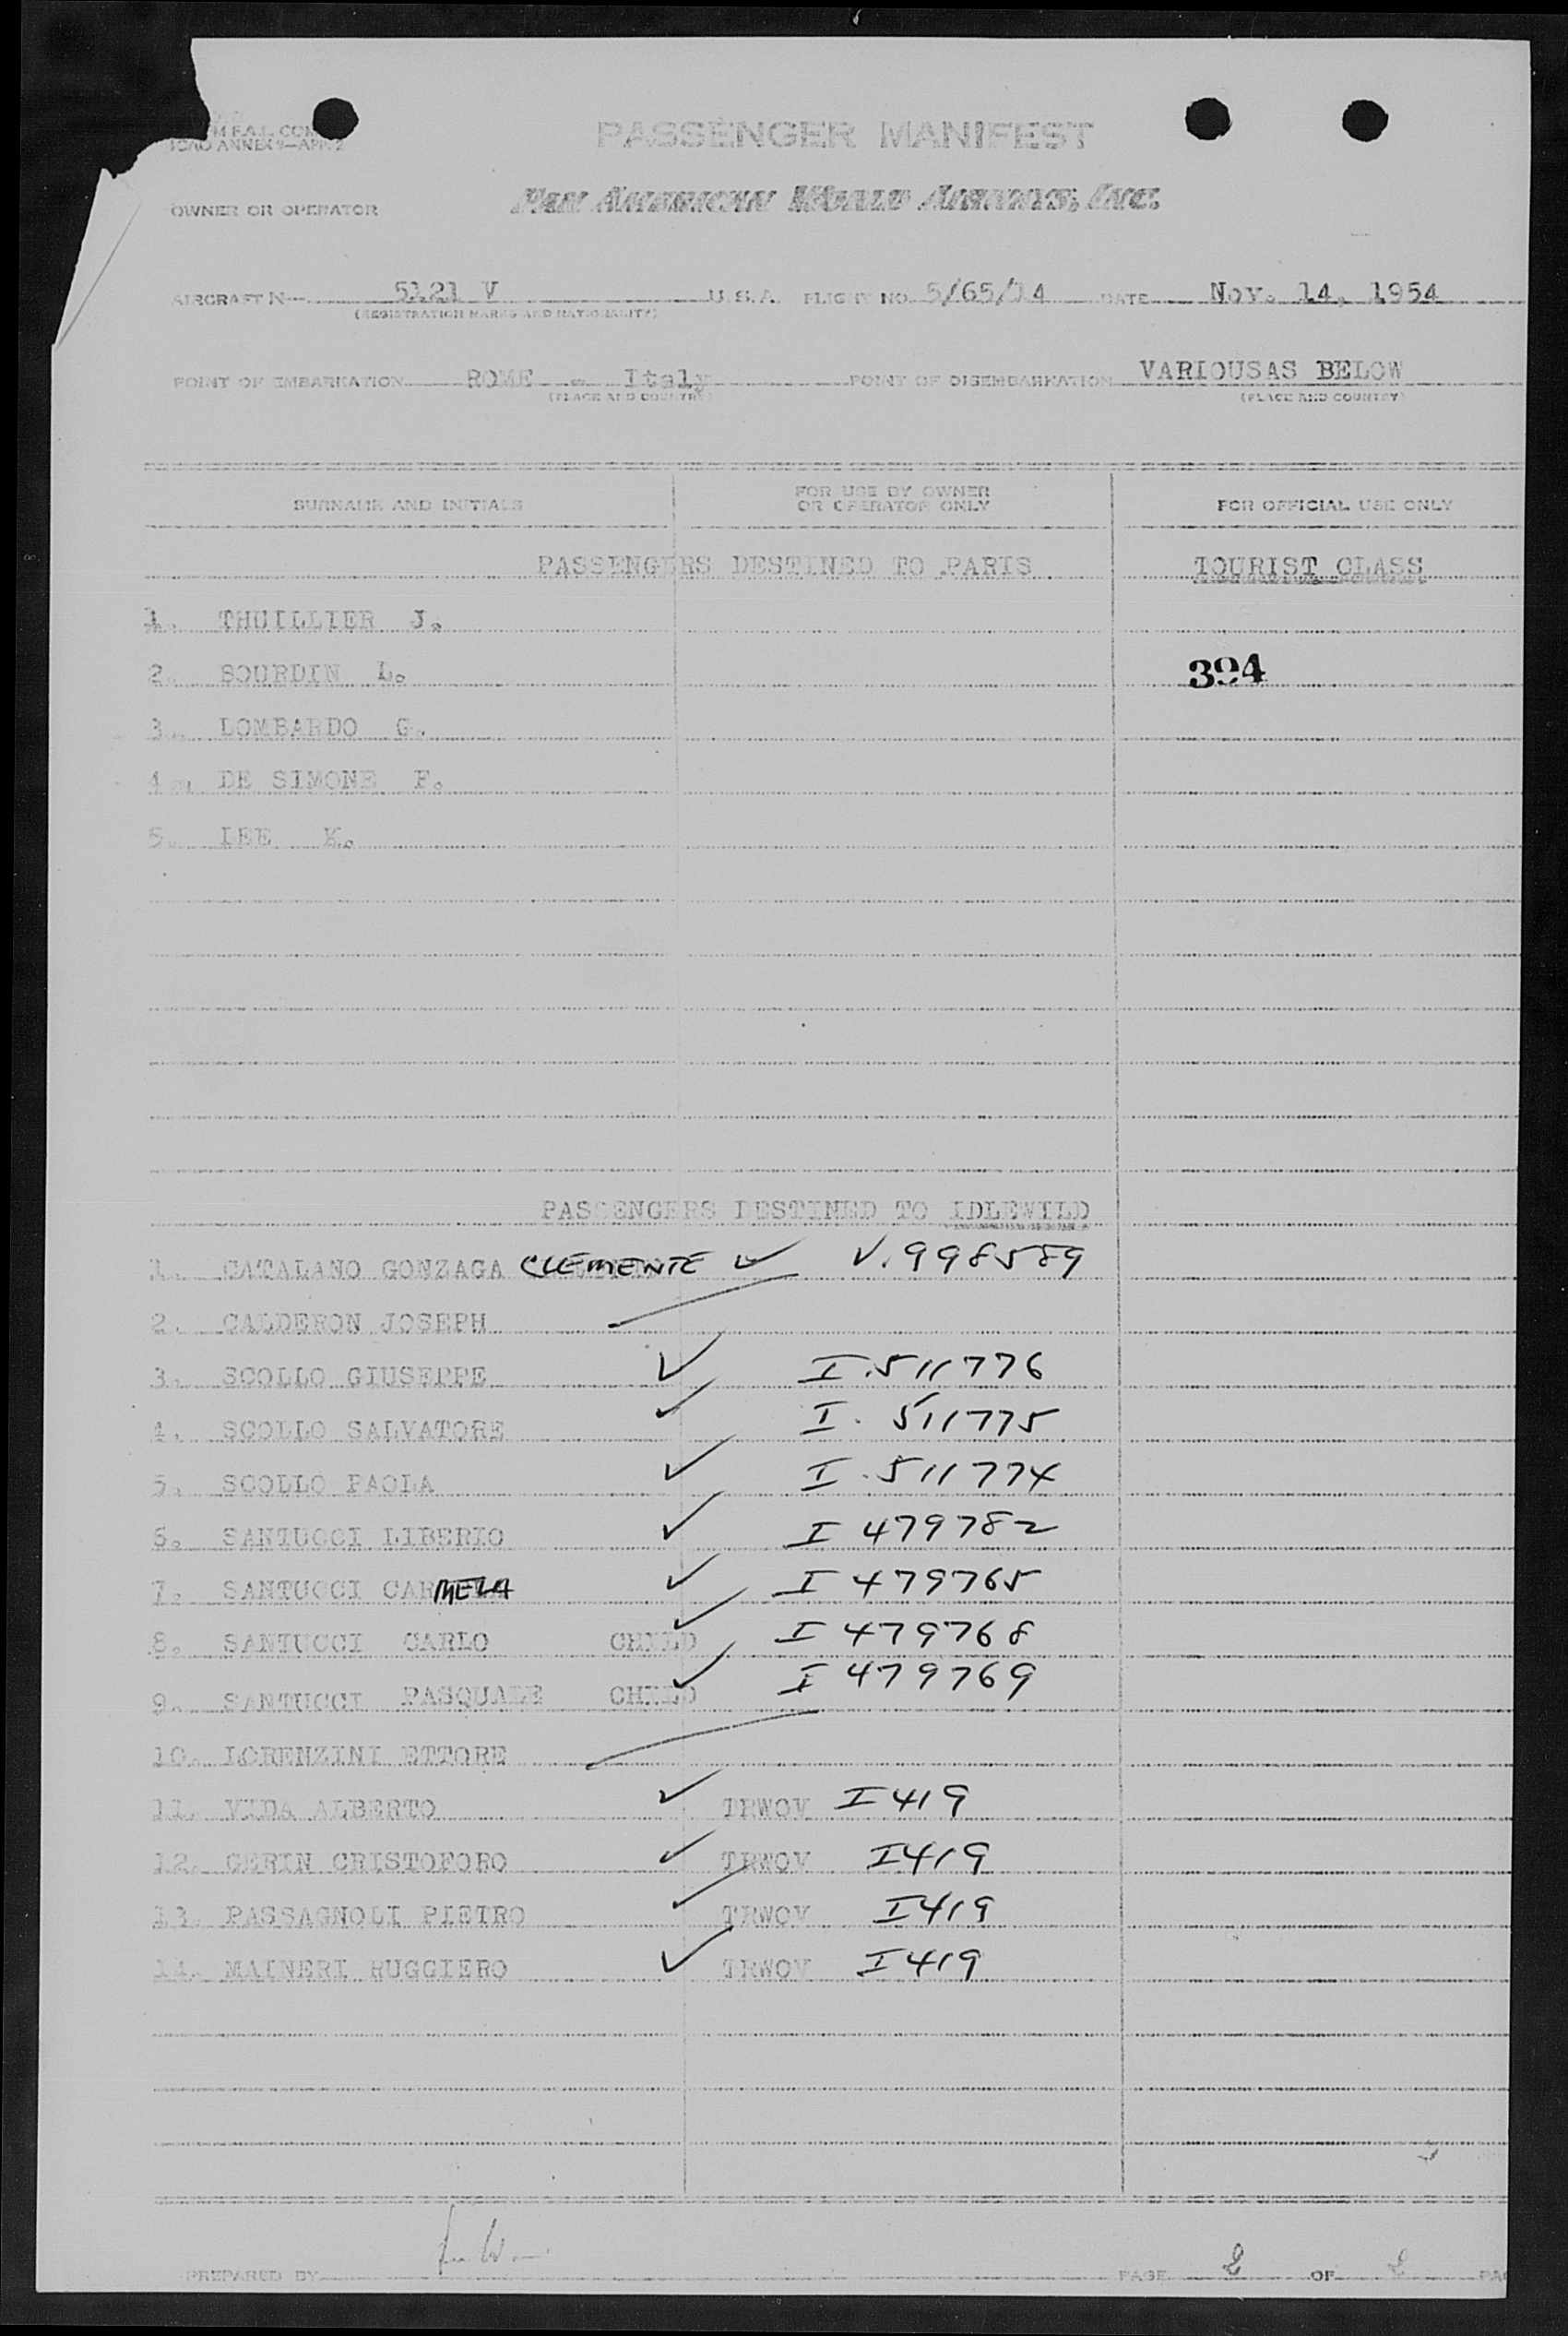 M F.A.L. COM
ICAO ANNEX 9—APP. 2
PASSENGER MANIFEST
OWNER OR OPERATOR PAN AMERICAN WORLD AIRWAYS, INC.
AIRCRAFT N— 5121 V U.S.A. FLIGHT NO. 5/65/14 DATE Nov. 14, 1954
(REGISTRATION MARKS AND NATIONALITY)
POINT OF EMBARKATION ROME - Italy POINT OF DISEMBARKATION VARIOUSAS BELOW
(PLACE AND COUNTRY) (PLACE AND COUNTRY)
SURNAME AND INITIALS FOR USE BY OWNER OR OPERATOR ONLY FOR OFFICIAL USE ONLY
PASSENGERS DESTINED TO PARIS TOURIST CLASS
1. THUILLIER J.
2. SOURDIN L. 394
3. LOMBARDO G.
4. DE SIMONE F.
5. LEE K.
PASSENGERS DESTINED TO IDLEWILD
1. CATALANO GONZAGA CLEMENTE ✓ V. 998589
2. CALDERON JOSEPH
3. SCOLLO GIUSEPPE ✓ I. 511776
4. SCOLLO SALVATORE ✓ I. 511775
5. SCOLLO PAOLA ✓ I. 511774
6. SANTUCCI LIBERIO ✓ I 479782
7. SANTUCCI CARMELA ✓ I 479765
8. SANTUCCI CARLO CHILD ✓ I 479768
9. SANTUCCI PASQUALE CHILD ✓ I 479769
10. LORENZINI ETTORE
11. VIDA ALBERTO ✓ TRWOV I 419
12. GERIN CRISTOFORO ✓ TRWOV I 419
13. PASSAGNOLI PIETRO ✓ TRWOV I 419
14. MAINERI RUGGIERO ✓ TRWOV I 419
PREPARED BY PAGE 2 OF 2 PA